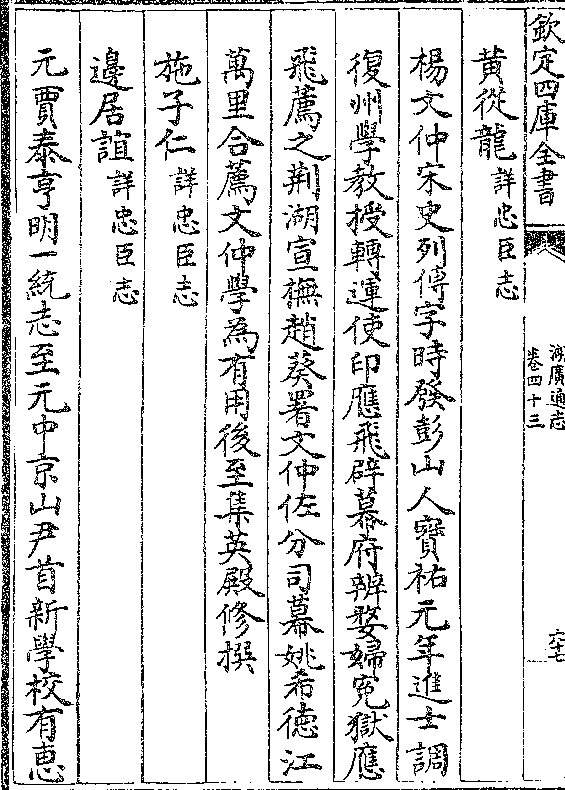 欽定四庫全書
湖廣通志
卷四十三
六十七
黄從龍詳忠臣志
楊文仲宋史列傳字時發彭山人寳祐元年進士調
復州學教授轉運使印應飛辟幕府辨婺婦寃獄應
飛薦之荆湖宣撫趙葵署文仲佐分司幕姚希徳江
萬里合薦文仲學為有用後至集英殿修撰
施子仁詳忠臣志
邊居誼詳忠臣志
元賈泰亨明一統志至元中京山尹首新學校有恵